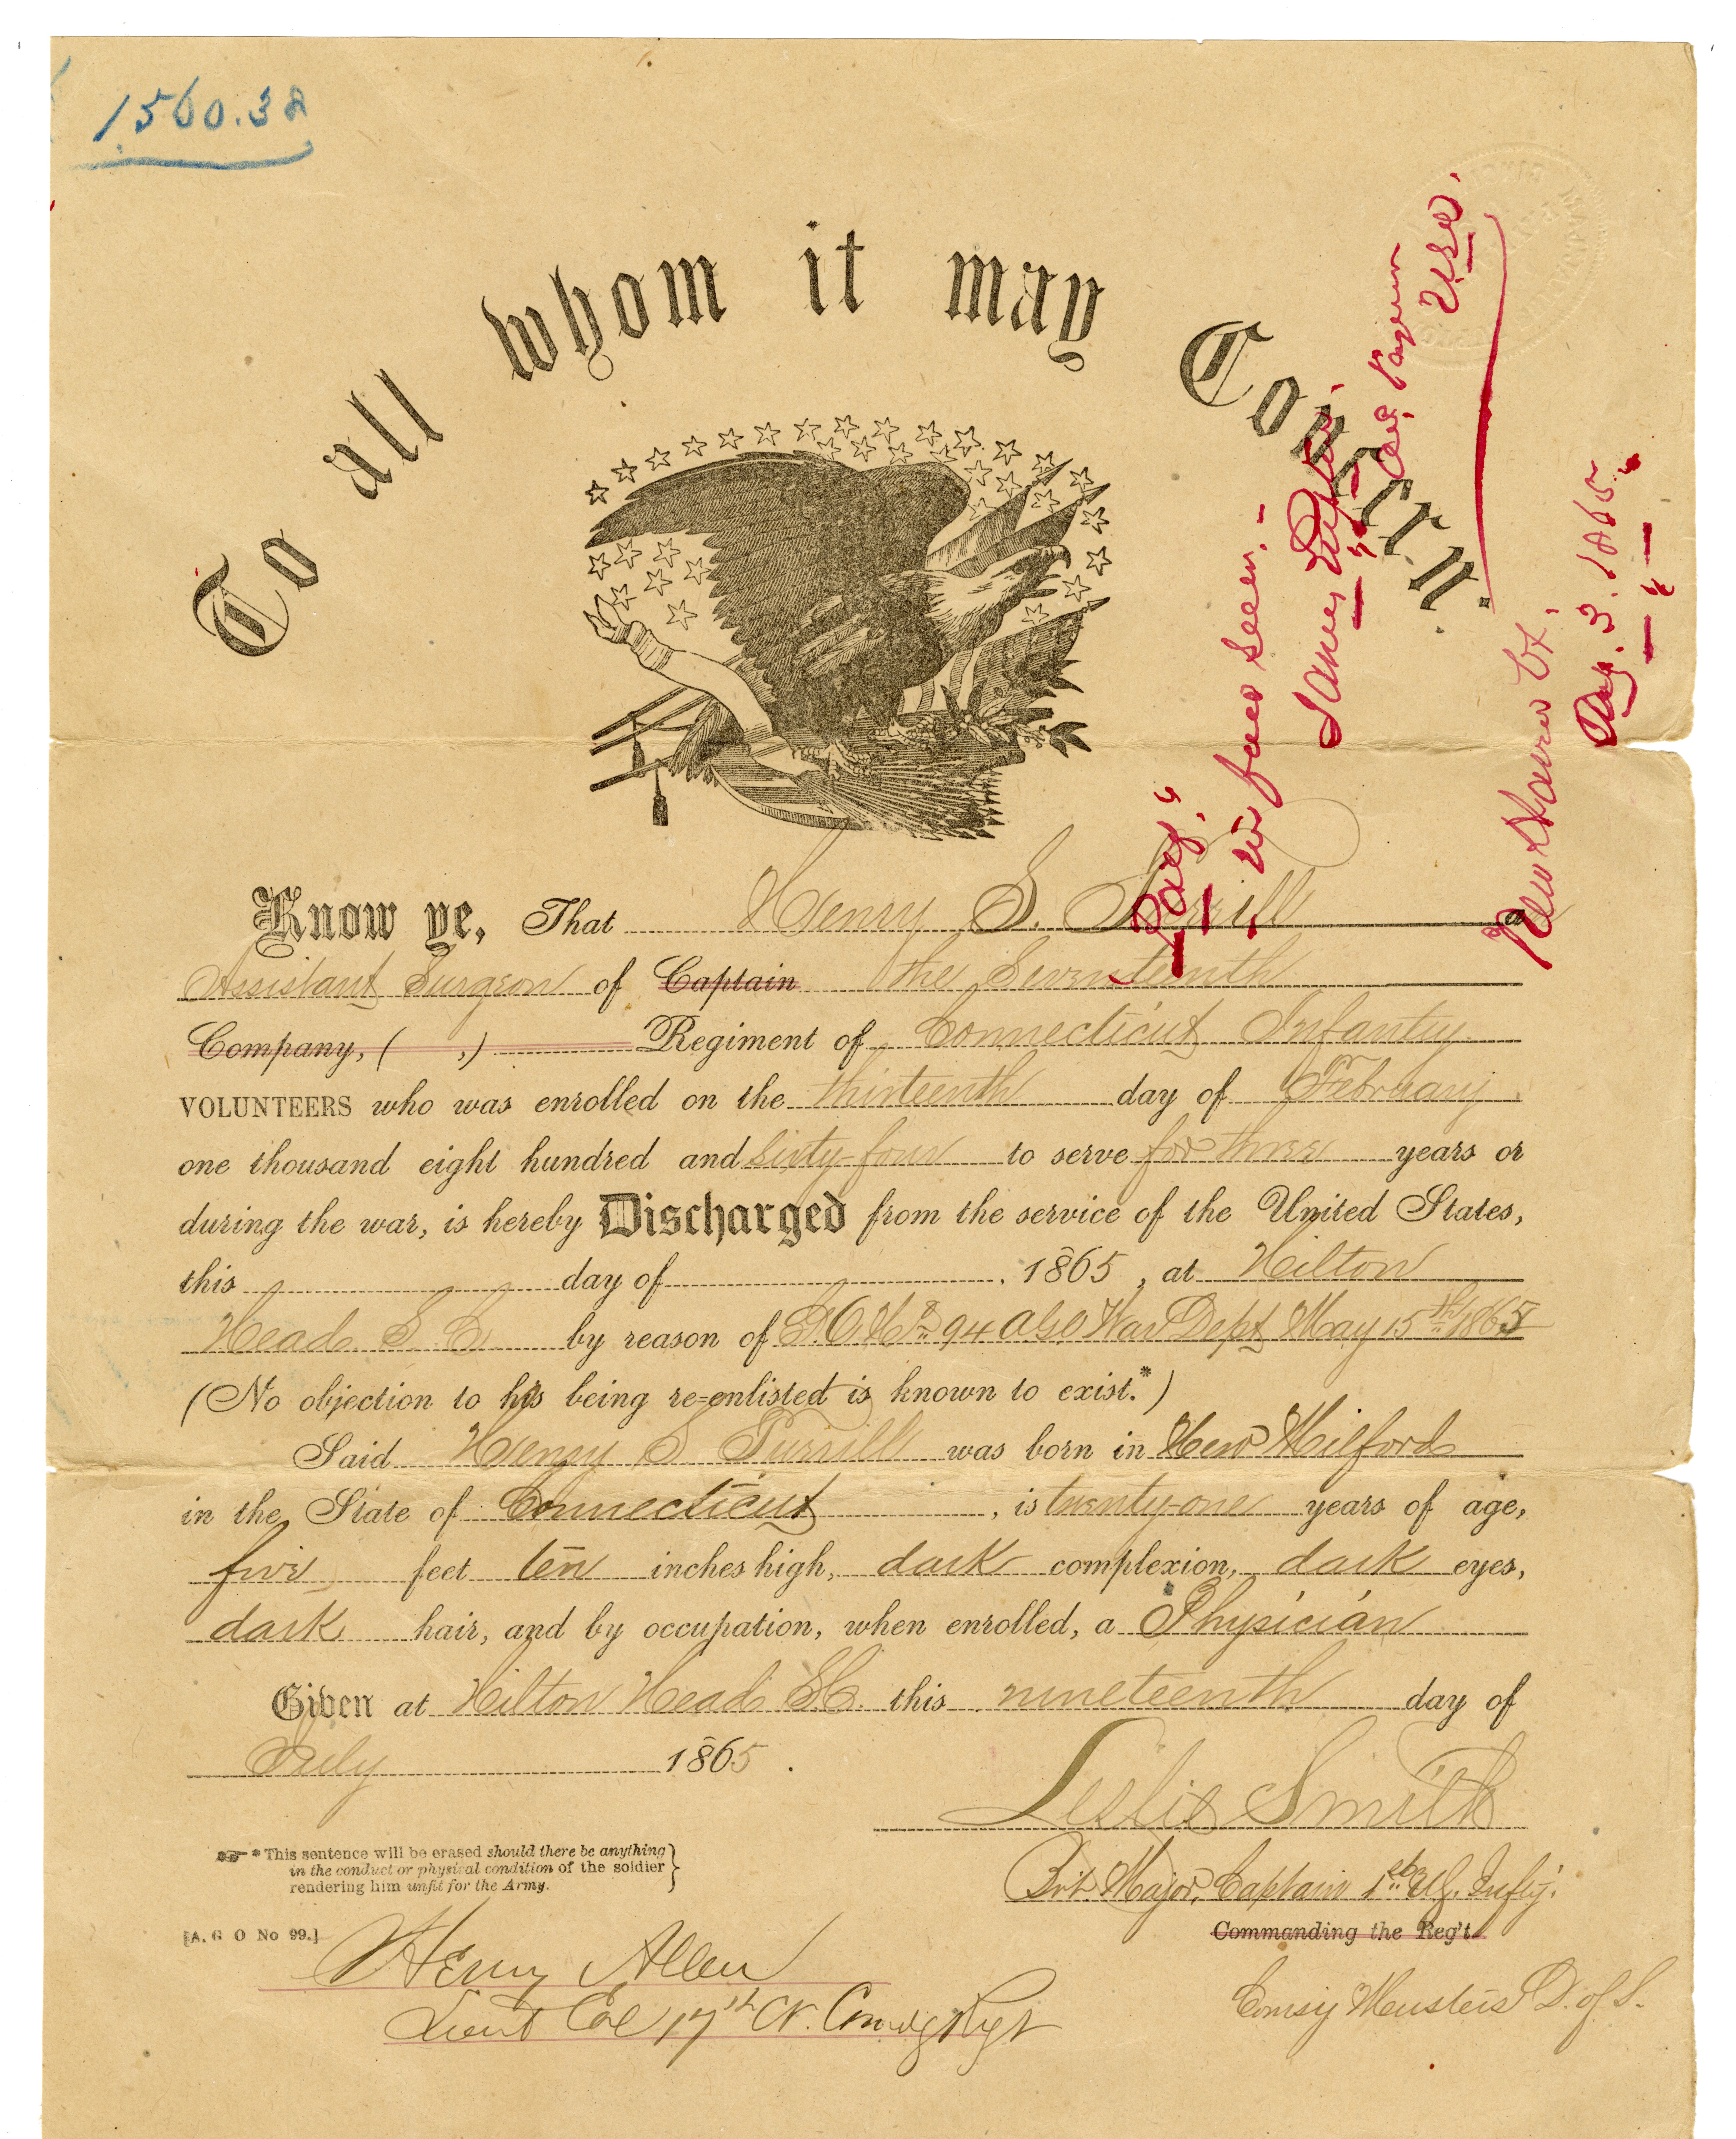 1560.32
To all whom it may Concern.
Know ye, That Henry S. Turrill a
Assistant Surgeon of Captain the Seventeenth
Company, ( ,) Regiment of Connecticut Infantry
VOLUNTEERS who was enrolled on the thirteenth day of February
one thousand eight hundred and sixty-four to serve for three years or
during the war, is hereby Discharged from the service of the United States,
this day of , 1865, at Hilton
Head S. C. by reason of G.O. No 94 AGO War Dept May 15th 1865
(No objection to his being re-enlisted is known to exist.*)
Said Henry S Turrill was born in New Milford
in the State of Connecticut , is twenty-one years of age,
five feet ten inches high, dark complexion, dark eyes,
dark hair, and by occupation, when enrolled, a Physician
Given at Hilton Head S.C. this nineteenth day of
July 1865.
Leslie Smith
Bvt Major, Captain 1st U.S. Infty.
Commanding the Reg't
Comsy Musters D. of S.
* This sentence will be erased should there be anything
in the conduct or physical condition of the soldier
rendering him unfit for the Army.
[A. G O No 99.]
Henry Allen
Lieut Col 17th CV. Comdg Regt
Paid,
in full
New Haven Ct.,
Aug. 3. 1865.